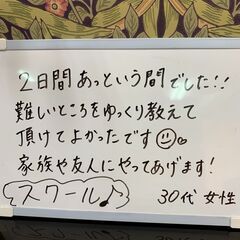 2日間あっという間でした!!
難しいところをゆっくり教えて
頂けてよかったです
家族や友人にやってあげます!
スクール♪
30代 女性